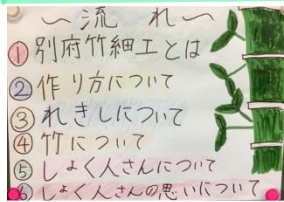 〜流れ〜
①別府竹細工とは
②作り方について
③れきしについて
④竹について
⑤しょく人さんについて
⑥しょく人さんの思いについて